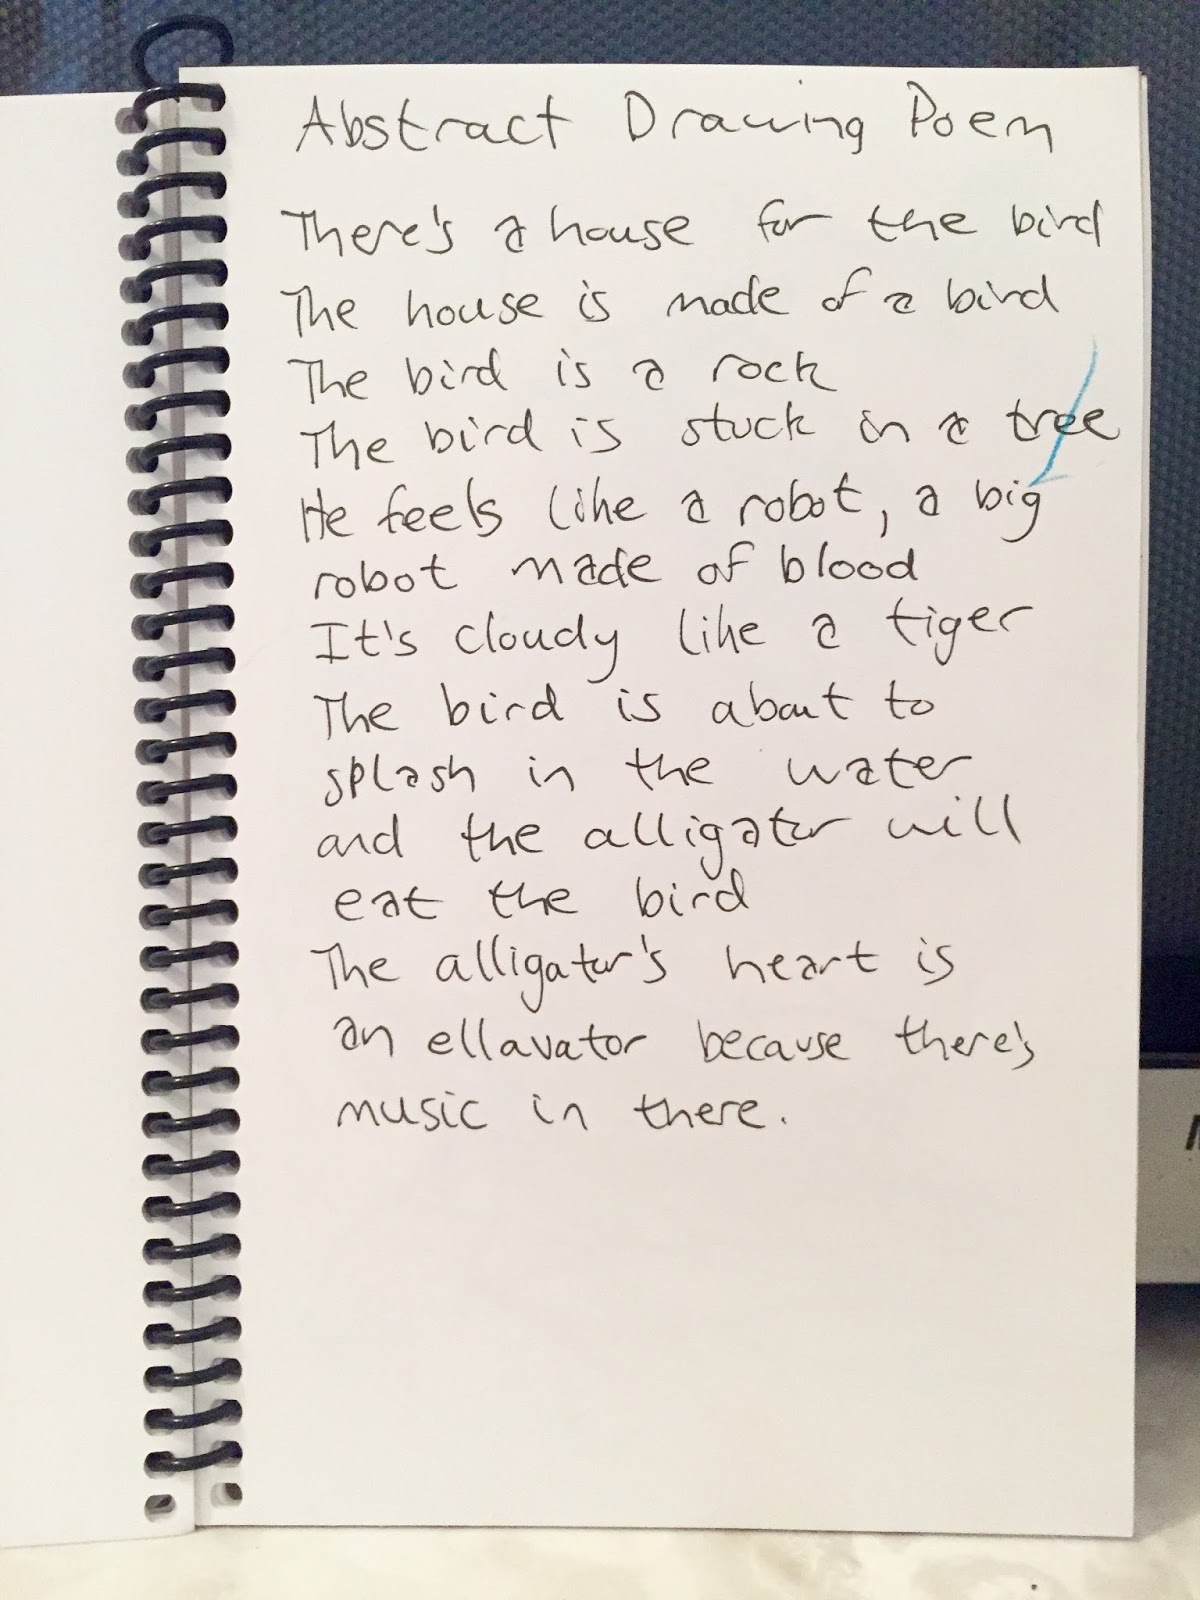 Abstract Drawing Poem
There's a house for the bird
The house is made of a bird
The bird is a rock
The bird is stuck in a tree
He feels like a robot, a big
robot made of blood
It's cloudy like a tiger
The bird is about to
splash in the water
and the alligator will
eat the bird
The alligator's heart is
an ellavator because there's
music in there.